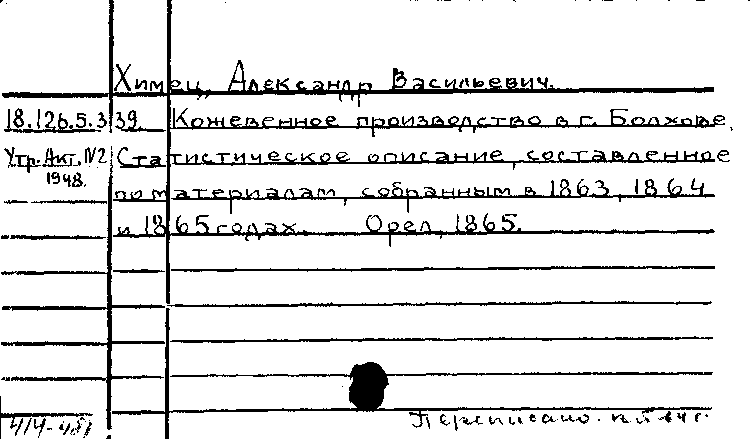 Химец, Александр Васильевич.
18.126.5.339. Кожевенное производство в г. Болхове.
Утр. Акт. №2 Статистическое описание, составленное
1948. по материалам, собранным в 1863, 1864
и 1865 годах. Орел, 1865.
414-48/
Переписано.